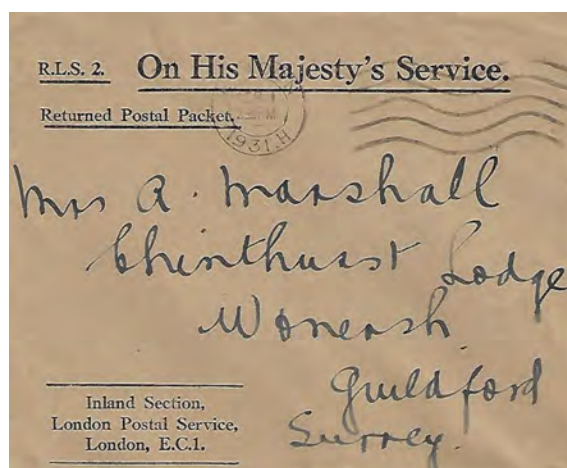 R.L.S. 2. On His Majesty's Service.
Returned Postal Packet.
1931.H
Mrs A. Marshall
Chinthurst Lodge
Wonersh
Guildford
Surrey.
Inland Section,
London Postal Service,
London, E.C.1.